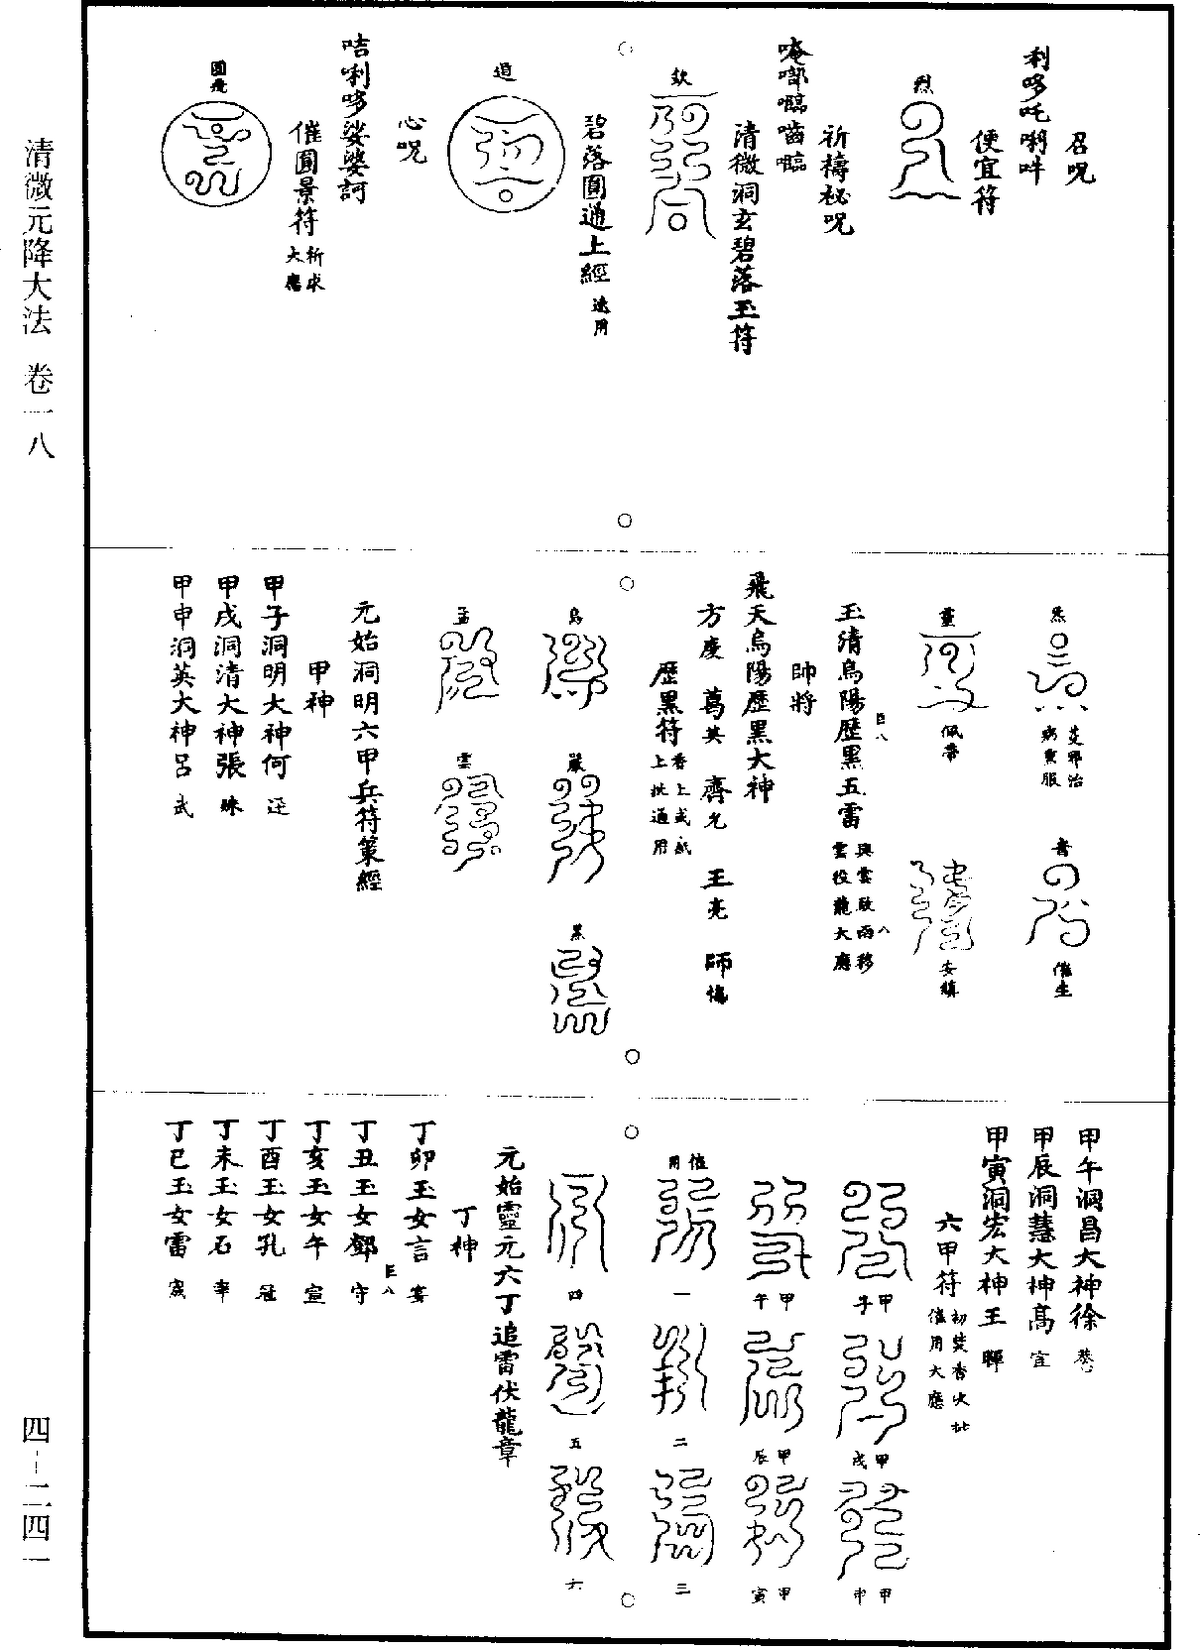 清微元降大法　卷一八
四—二四一
召呪
利哆吒唎吽
便宜符
烈
祈禱秘呪
唵啷囓嚙囓
清微洞玄碧落玉符
欽
碧落圓通上經 速用
過
心呪
咭唎哆娑婆訶
催圓景符 祈求大應
圓飛
炁
芟邪治病熏服
催生
靈
佩帶
安鎮
巨八
玉清烏陽歷黑五雷 興雲致雨移雲役龍大應
八
帥將
飛天烏陽歷黑大神
方慶　葛英　齊允　王亮　師愽
歷黑符 香上或紙上批通用
烏
嚴
黑
孟
雲
元始洞明六甲兵符策經
甲神
甲子洞明大神何 迋
甲戌洞清大神張 昧
甲申洞英大神呂 武
甲午洞昌大神徐
甲辰洞慧大神高 宜
甲寅洞宏大神王 暉
六甲符 初焚香火批催用大應
甲子
甲戌
甲申
甲午
甲辰
甲寅
催用
一
二
三
四
五
六
元始靈元六丁追雷伏龍章
丁神
丁卯玉女言 宴
巨八
丁丑玉女鄧 守
丁亥玉女午 宣
丁酉玉女孔 冠
丁未玉女石 宰
丁巳玉女雷 賓